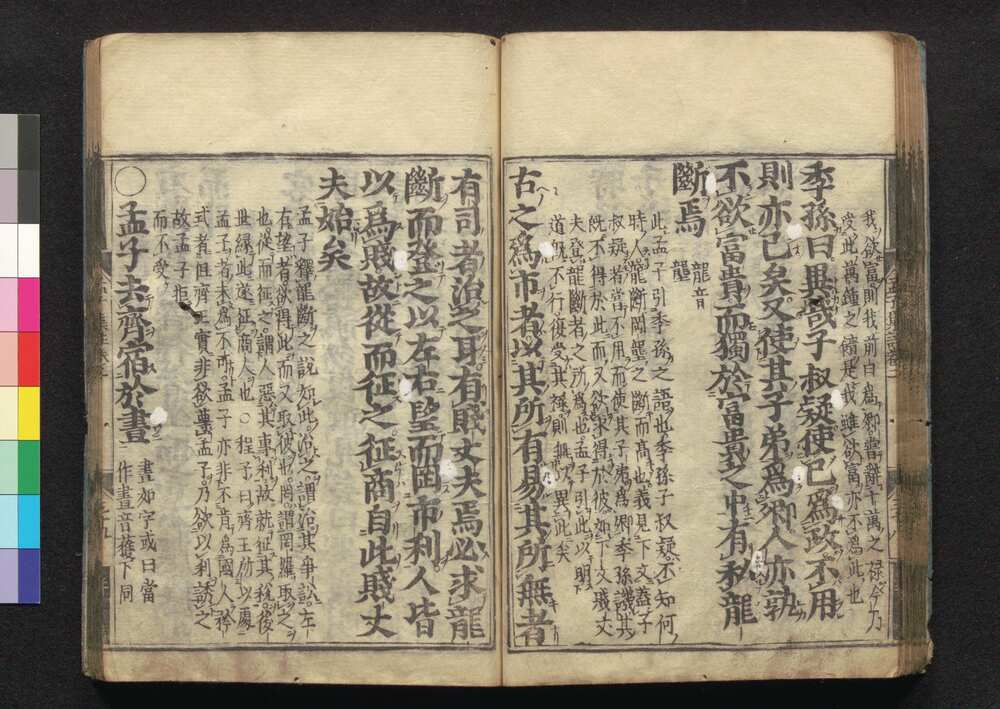 我欲富則我前日爲卿嘗辭十萬之祿今乃
受此萬鍾之饋是我雖欲富亦不爲此也
季孫曰異哉子叔疑使己爲政不用
則亦已矣又使其子弟爲卿人亦孰
不欲富貴而獨於富貴之中有私龍
斷焉
龍音
壟
此孟子引季孫之語也季孫子叔疑不知何
時人龍斷岡壟之斷而高也義見下文蓋子
叔疑者嘗不用而使其子弟爲卿季孫譏其
既不得於此而又欲求得於彼如下文賤丈
夫登龍斷者之所爲也孟子引此以明
道既不行復受其祿則無以異此矣
古之爲市者以其所有易其所無者
有司者治之耳有賤丈夫焉必求龍
斷而登之以左右望而罔市利人皆
以爲賤故從而征之征商自此賤丈
夫始矣
孟子釋龍斷之說如此治之謂治其爭訟左
右望者欲得此而又取彼也罔謂罔羅取之
也從而征之謂人惡其專利故就征其稅後
世緣此遂征商人也○程子曰齊王所以處
孟子者未爲不可孟子亦非不肯爲國人矜
式者但齊王實非欲尊孟子乃欲以利誘之
故孟子拒
而不受
○孟子去齊宿於晝
晝如字或曰當
作畫音獲下同